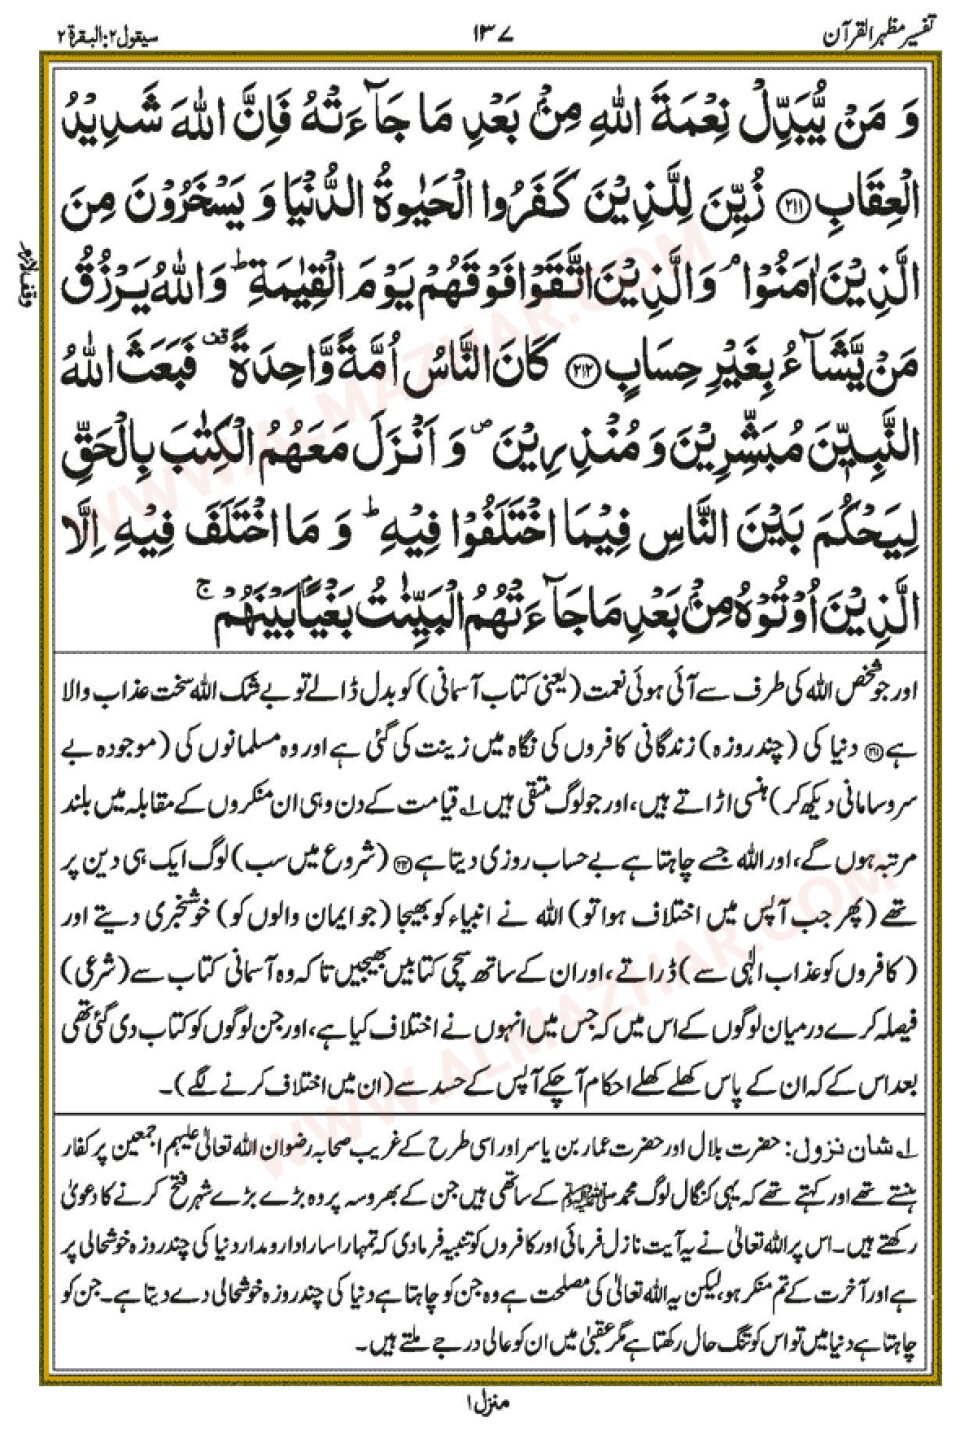 تفسیر مظہر القرآن
۱۳۷
سیقول ۲: البقرۃ ۲
وَ مَنْ یُّبَدِّلْ نِعْمَةَ اللّٰهِ مِنْۢ بَعْدِ مَا جَآءَتْهُ فَاِنَّ اللّٰهَ شَدِیْدُ
الْعِقَابِ ﴿۲۱۱﴾ زُیِّنَ لِلَّذِیْنَ كَفَرُوا الْحَیٰوةُ الدُّنْیَا وَ یَسْخَرُوْنَ مِنَ
الَّذِیْنَ اٰمَنُوْا ۘ وَالَّذِیْنَ اتَّقَوْا فَوْقَهُمْ یَوْمَ الْقِیٰمَةِ ؕ وَاللّٰهُ یَرْزُقُ
وقف لازم
مَنْ یَّشَآءُ بِغَیْرِ حِسَابٍ ﴿۲۱۲﴾ كَانَ النَّاسُ اُمَّةً وَّاحِدَةً ۫ فَبَعَثَ اللّٰهُ
النَّبِیّٖنَ مُبَشِّرِیْنَ وَ مُنْذِرِیْنَ ۪ وَ اَنْزَلَ مَعَهُمُ الْكِتٰبَ بِالْحَقِّ
لِیَحْكُمَ بَیْنَ النَّاسِ فِیْمَا اخْتَلَفُوْا فِیْهِ ؕ وَ مَا اخْتَلَفَ فِیْهِ اِلَّا
الَّذِیْنَ اُوْتُوْهُ مِنْۢ بَعْدِ مَا جَآءَتْهُمُ الْبَیِّنٰتُ بَغْیًۢا بَیْنَهُمْ ۚ
اور جو شخص اللہ کی طرف سے آئی ہوئی نعمت (یعنی کتاب آسمانی) کو بدل ڈالے تو بے شک اللہ سخت عذاب والا
ہے ﴿۲۱۱﴾ دنیا کی (چند روزہ) زندگانی کافروں کی نگاہ میں زینت کی گئی ہے اور وہ مسلمانوں کی (موجودہ بے
سروسامانی دیکھ کر) ہنسی اڑاتے ہیں، اور جو لوگ متقی ہیں ۱؎ قیامت کے دن وہی ان منکروں کے مقابلہ میں بلند
مرتبہ ہوں گے، اور اللہ جسے چاہتا ہے بے حساب روزی دیتا ہے ﴿۲۱۲﴾ (شروع میں سب) لوگ ایک ہی دین پر
تھے (پھر جب آپس میں اختلاف ہوا تو) اللہ نے انبیاء کو بھیجا (جو ایمان والوں کو) خوشخبری دیتے اور
(کافروں کو عذاب الٰہی سے) ڈراتے، اور ان کے ساتھ سچی کتابیں بھیجیں تاکہ وہ آسمانی کتاب سے (شرعی)
فیصلہ کرے درمیان لوگوں کے اس میں کہ جس میں انہوں نے اختلاف کیا ہے، اور جن لوگوں کو کتاب دی گئی تھی
بعد اس کے کہ ان کے پاس کھلے کھلے احکام آ چکے آپس کے حسد سے (ان میں اختلاف کرنے لگے)۔
۱؎ شان نزول: حضرت بلال اور حضرت عمار بن یاسر اور اسی طرح کے غریب صحابہ رضوان اللہ تعالیٰ علیہم اجمعین پر کفار
ہنستے تھے اور کہتے تھے کہ یہی کنگال لوگ محمد ﷺ کے ساتھی ہیں جن کے بھروسہ پر وہ بڑے بڑے شہر فتح کرنے کا دعویٰ
رکھتے ہیں۔ اس پر اللہ تعالیٰ نے یہ آیت نازل فرمائی اور کافروں کو تنبیہ فرما دی کہ تمہارا سارا دارومدار دنیا کی چند روزہ خوشحالی پر
ہے اور آخرت کے تم منکر ہو، لیکن یہ اللہ تعالیٰ کی مصلحت ہے وہ جن کو چاہتا ہے دنیا کی چند روزہ خوشحالی دے دیتا ہے۔ جن کو
چاہتا ہے دنیا میں تو اس کو تنگ حال رکھتا ہے مگر عقبیٰ میں ان کو عالی درجے ملتے ہیں۔
منزل ۱
WWW.ALMAZHAR.COM
WWW.ALMAZHAR.COM